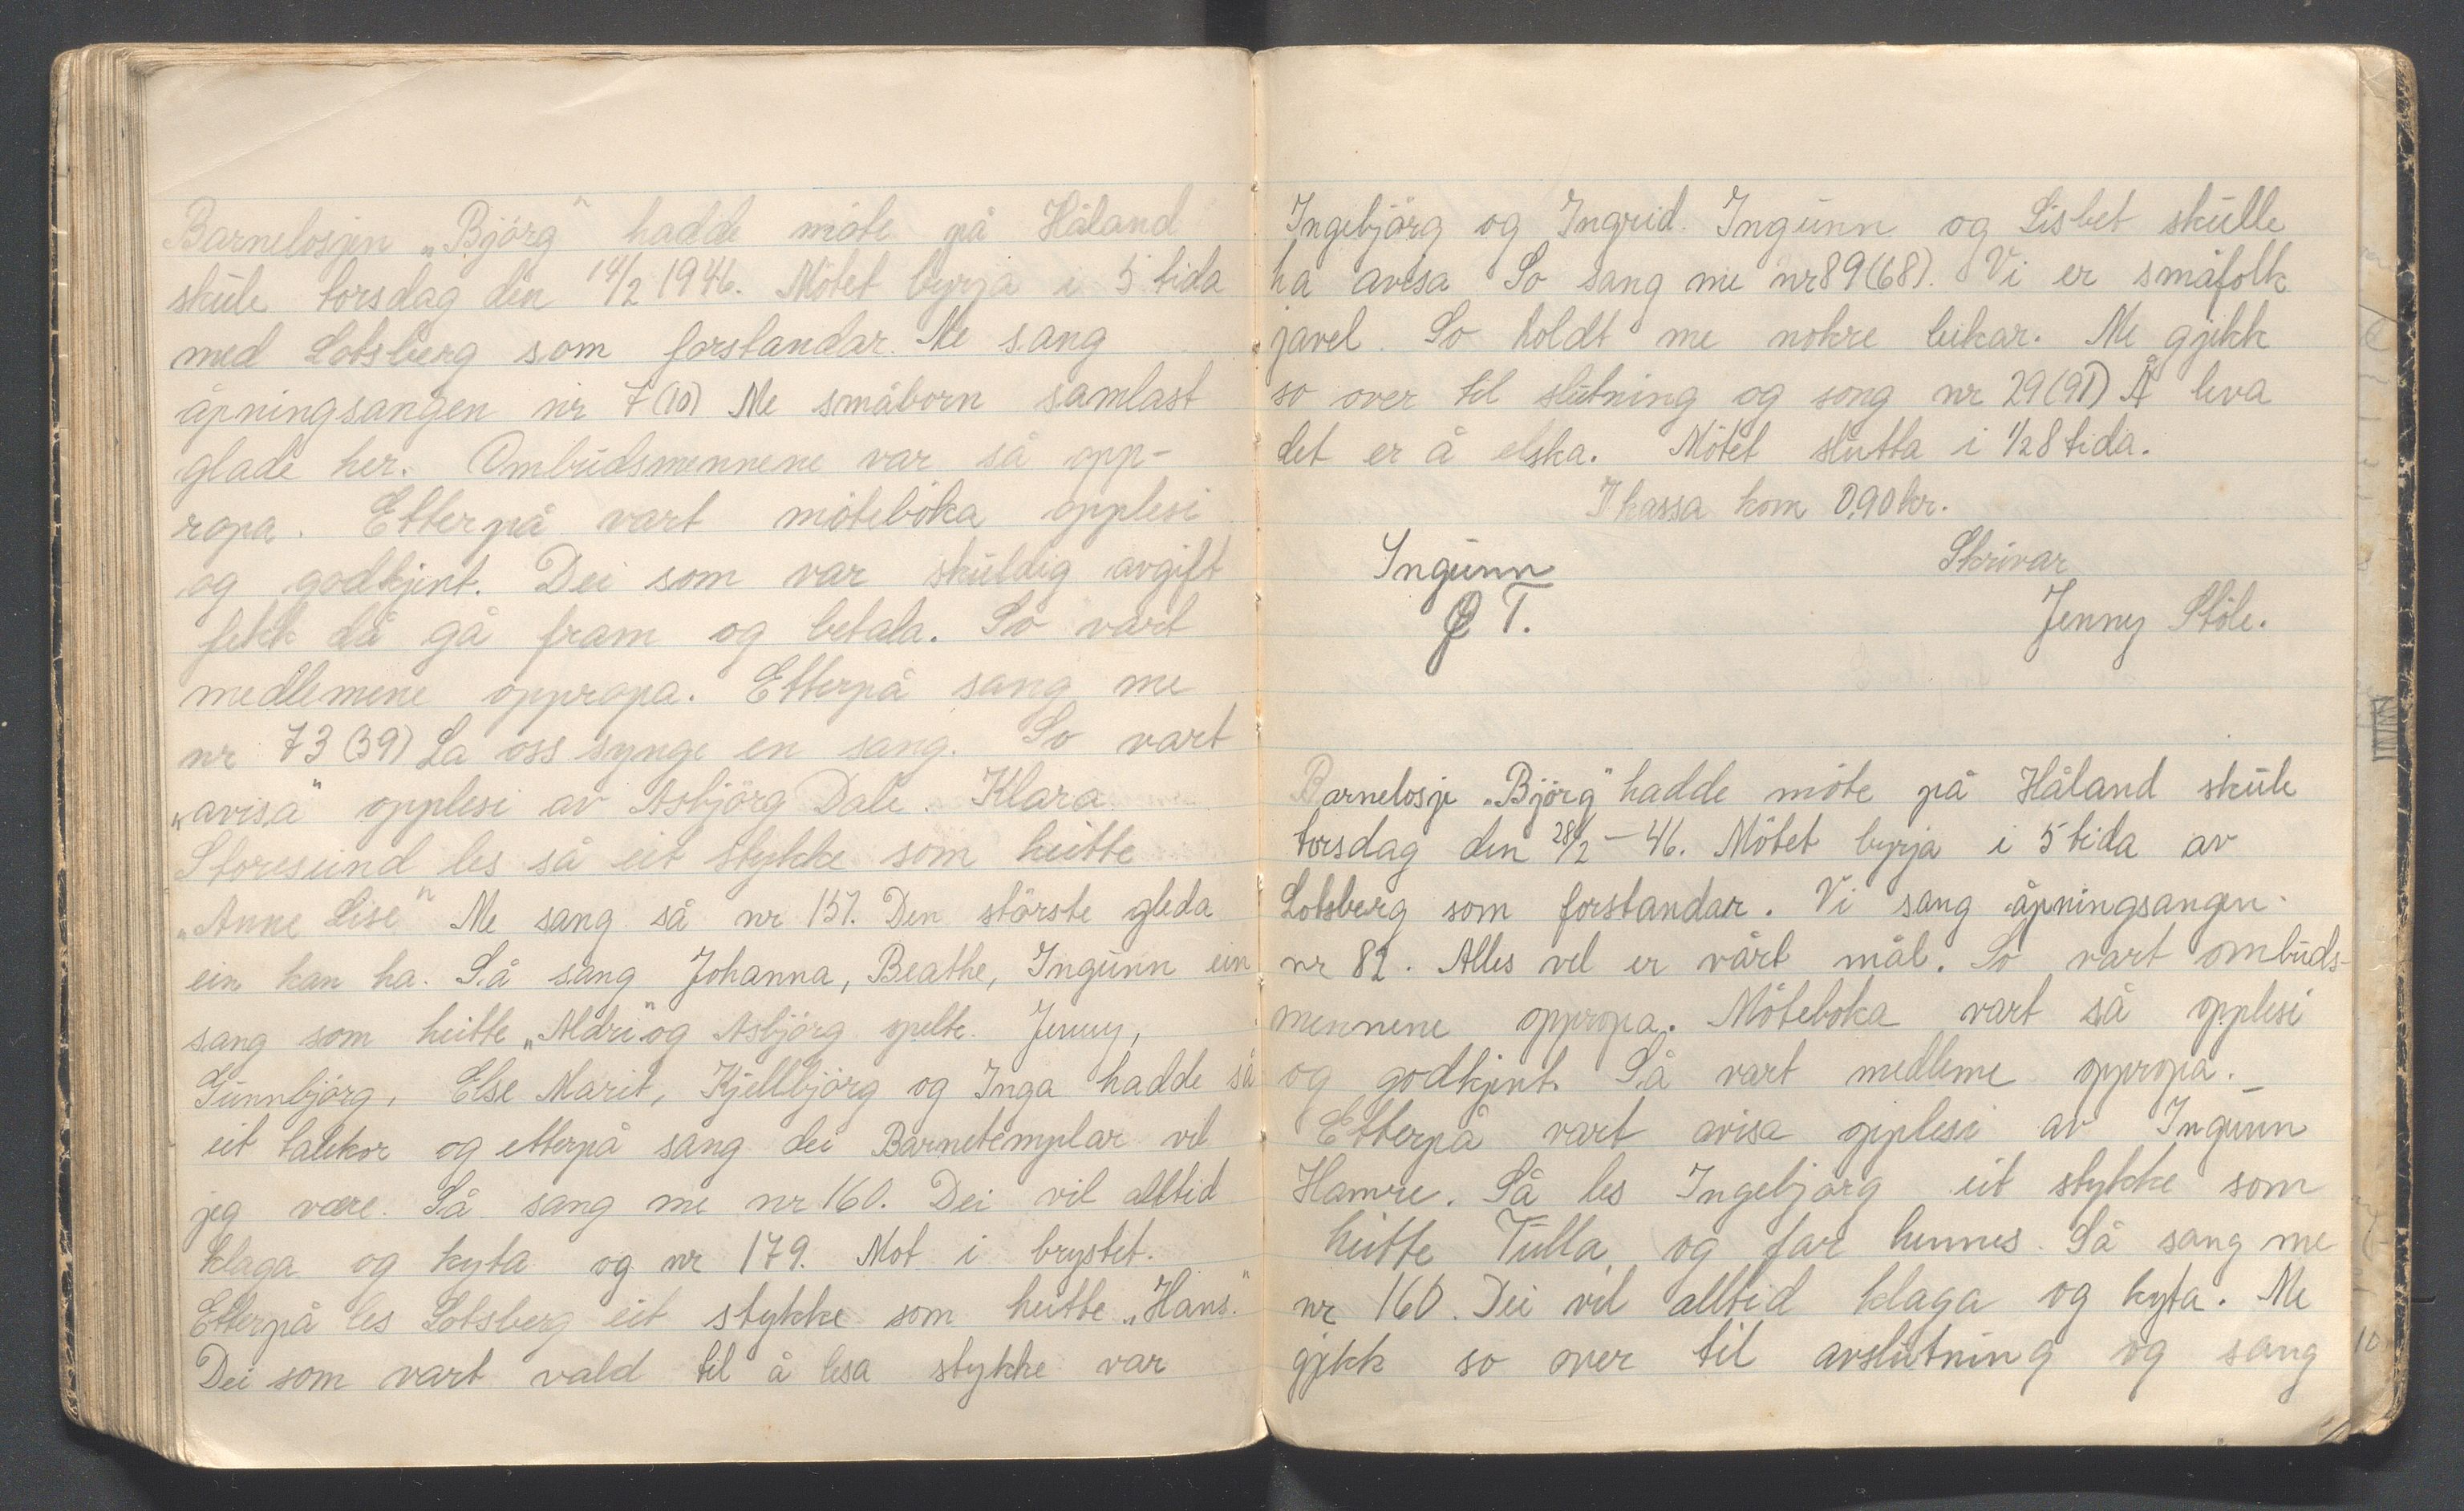 Barnelosjen „Björg" hadde möte på Håland
skule torsdag den 14/2 1946. Mötet byrja i 5 tida
med Lotsberg som forstandar. Me sang
åpningsangen nr 7(10) Me småborn samlast
glade her. Ombudsmennene var så opp-
ropa. Etterpå vart möteboka opplesi
og godkjent. Dei som var skuldig avgift
fekk då gå fram og betala. So vart
medlemene oppropa. Etterpå sang me
nr 73 (39) La oss synge en sang. So vart
„avisa" opplesi av Asbjörg Dale. Klara
Storesund les så eit stykke som heitte
„Anne Lise" Me sang så nr 157. Den störste gleda
ein kan ha. Så sang Johanna, Beathe, Ingunn ein
sang som heitte „Aldri" og Asbjörg spelte. Jenny,
Gunnbjörg, Else Marit, Kjellbjörg og Inga hadde så
eit talekor og etterpå sang dei Barnetemplar vil
jeg være. Så sang me nr 160. Dei vil alltid
klaga og kyta og nr 179. Mot i brystet.
Etterpå les Lotsberg eit stykke som heitte „Hans."
Dei som vart vald til å lesa stykke var
Ingebjörg og Ingrid. Ingunn og Lisbet skulle
ha avisa So sang me nr 89(68). Vi er småfolk
javel. So holdt me nokre leikar. Me gjekk
so over til slutning og song nr 29(91) Å leva
det er å elska. Mötet slutta i 1/2 8 tida.
I kassa kom 0,90 kr.
Ingunn Skrivar
Ø T. Jenny Stöle.
Barnelosje „Björg" hadde möte på Håland skule
torsdag den 28/2 – 46. Mötet byrja i 5 tida av
Lotsberg som forstandar. Vi sang åpningsangen.
nr 82. Alles vel er vårt mål. So vart ombuds-
mennene oppropa. Möteboka vart så opplesi
og godkjent. Så vart medleme oppropa.
Etterpå vart avisa opplesi av Ingunn
Hamre. Så les Ingebjörg eit stykke som
heitte Tulla og far hennes. Så sang me
nr 160. Dei vil alltid klaga og kyta. Me
gjekk so over til avslutning og sang